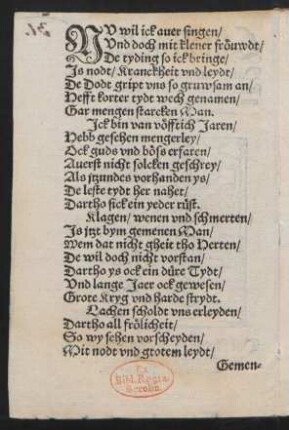 NV wil ick auer singen/
Vnd doch mit klener fröuwdt/
De tyding so ick bringe/
Js nodt/ Kranckheit vnd leydt/
De Dodt gript vns so gruwsam an/
Hefft korter tydt wech genamen/
Gar mengen starcken Man.
Jck bin van vöfftich Jaren/
Hebb gesehen mengerley/
Ock guds vnd böss erfaren/
Auerst nicht solcken geschrey/
Als jtzundes vorhanden ys/
De leste tydt her nahet/
Dartho sick ein yeder rüst.
Klagen/ wenen vnd schmerten/
Js jtzt bym gemenen Man/
Wem dat nicht gheit tho Herten/
De wil doch nicht vorstan/
Dartho ys ock ein düre Tydt/
Vnd lange Jaer ock gewesen/
Grote Kryg vnd harde strydt.
Lachen scholdt vns erleyden/
Dartho all frölicheit/
So wy sehen vorscheyden/
Mit nodt vnd grotem leydt/
Gemen-
Ex
Bibl. Regia
Berolin.